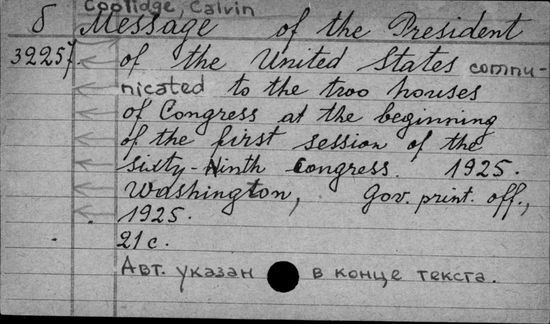 Coolidge, Calvin
б Message of the President
32257 of the United States commu-
nicated to the two houses
of Congress at the beginning
of the first session of the
sixty-Ninth Congress. 1925.
Washington, Gov. print. off.,
1925.
21 с.
Авт. указан в конце текста.